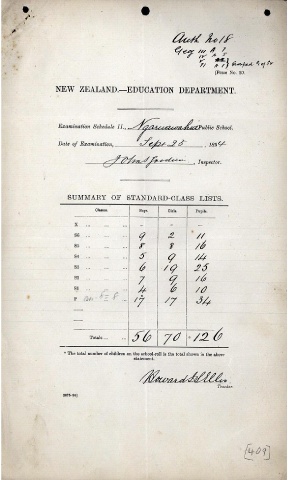 Auth No 18
Geog III
IV
V
VI
[Form No. 20.
NEW ZEALAND.—EDUCATION DEPARTMENT.
Examination Schedule II., Ngaruawahia Public School.
Date of Examination, Sept 25 1894
Inspector.
SUMMARY OF STANDARD-CLASS LISTS.
Classes. Boys. Girls. Pupils.
X ... ... ... - - -
S6 ... ... ... 9 2 11
S5 ... ... ... 8 8 16
S4 ... ... ... 5 9 14
S3 ... ... ... 6 19 25
S2 ... ... ... 7 9 16
S1 ... ... ... 4 6 10
P 17 17 34
Totals ... ... 56 70 * 126
* The total number of children on the school-roll is the total shown in the above
statement.
Howard Ellis
Teacher.
[409]